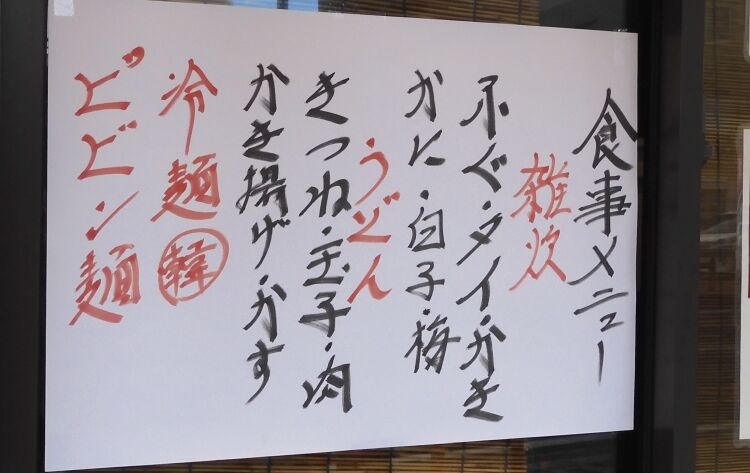 食事メニュー
雑炊
ふぐ・タイ・かき
かに・白子・梅
うどん
きつね・玉子・肉
かき揚げ・かす
冷麺 韓
ビビン麺